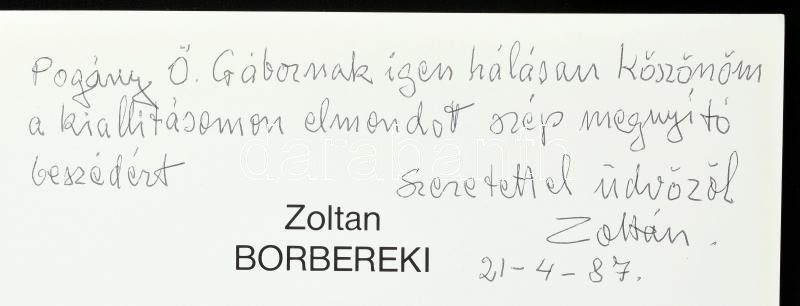 Pogány Ö. Gábornak igen hálásan köszönöm
a kiállitásomon elmondott szép megnyitó
beszédért
Szeretettel üdvözöl
Zoltan
BORBEREKI
Zoltán.
21-4-87.